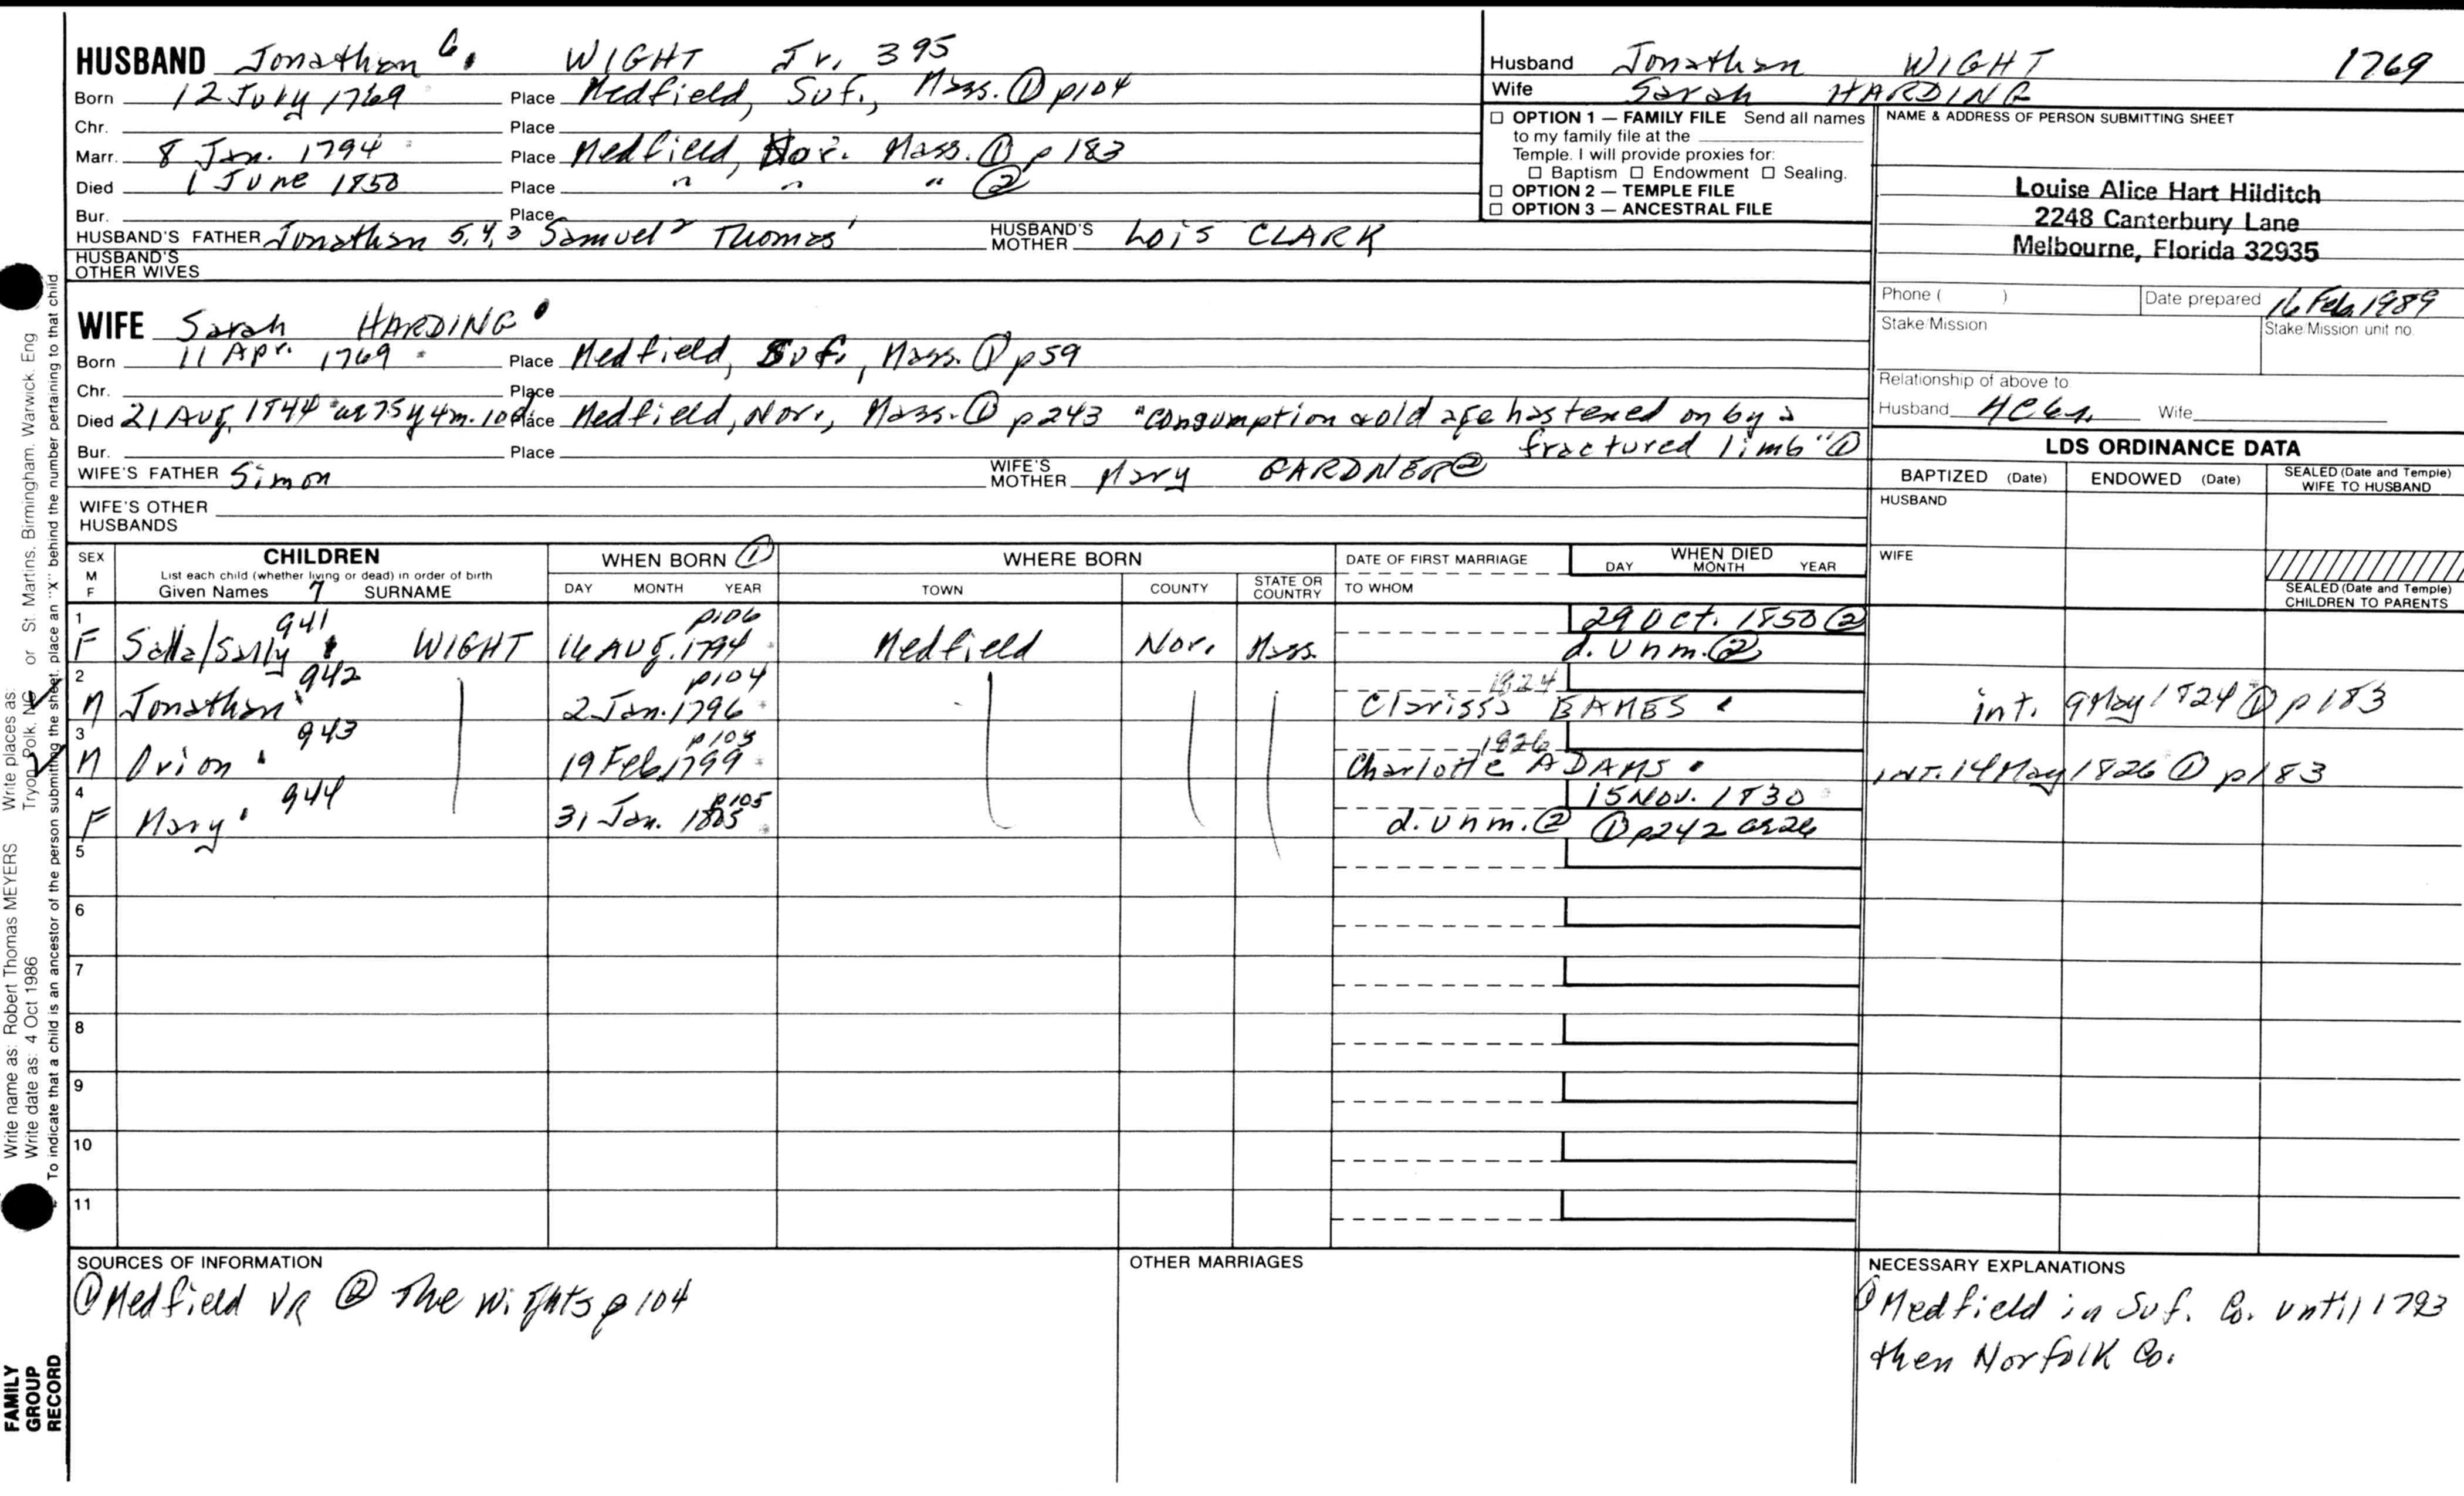 HUSBAND Jonathan 6. WIGHT Jr. 395
Born 12 July 1769 Place Medfield, Suf., Mass. ① p104
Chr. Place
Marr. 8 Jan. 1794 Place Medfield, Nor. Mass. ① p 183
Died 1 June 1850 Place " " " ②
Bur. Place
HUSBAND'S FATHER Jonathan 5,4,3 Samuel 2 Thomas 1 HUSBAND'S MOTHER Lois CLARK
HUSBAND'S OTHER WIVES
Husband Jonathan WIGHT 1769
Wife Sarah HARDING
☐ OPTION 1 — FAMILY FILE Send all names
to my family file at the
Temple. I will provide proxies for:
☐ Baptism ☐ Endowment ☐ Sealing.
☐ OPTION 2 — TEMPLE FILE
☐ OPTION 3 — ANCESTRAL FILE
NAME & ADDRESS OF PERSON SUBMITTING SHEET
Louise Alice Hart Hilditch
2248 Canterbury Lane
Melbourne, Florida 32935
Phone ( ) Date prepared 16 Feb. 1989
Stake/Mission Stake/Mission unit no.
Relationship of above to
Husband Wife
WIFE Sarah HARDING
Born 11 Apr. 1769 Place Medfield, Suf., Mass. ① p59
Chr. Place
Died 21 Aug. 1844 ae 75y 4m. 10d. Place Medfield, Nor., Mass. ① p243 "consumption & old age hastened on by a
fractured limb" ①
Bur. Place
WIFE'S FATHER Simon WIFE'S MOTHER Mary GARDNER ②
WIFE'S OTHER HUSBANDS
LDS ORDINANCE DATA
BAPTIZED (Date) ENDOWED (Date) SEALED (Date and Temple) WIFE TO HUSBAND
HUSBAND
WIFE
SEALED (Date and Temple) CHILDREN TO PARENTS
SEX M F
CHILDREN
List each child (whether living or dead) in order of birth
Given Names 7 SURNAME
WHEN BORN ①
DAY MONTH YEAR
WHERE BORN
TOWN COUNTY STATE OR COUNTRY
DATE OF FIRST MARRIAGE
TO WHOM
WHEN DIED
DAY MONTH YEAR
1 941 p106 29 Oct. 1850 ②
F Salla/Sally WIGHT 16 Aug. 1794 Medfield Nor. Mass. d. unm. ②
2 942 p104 1824
M Jonathan 2 Jan. 1796 Clarissa EAMES int. 9 May 1824 ① p183
3 943 p103 1826
M Orion 19 Feb. 1799 Charlotte ADAMS INT. 14 May 1826 ① p183
4 944 p105 15 Nov. 1830
F Mary 31 Jan. 1805 d. unm. ② ① p242 ae 26
5
6
7
8
9
10
11
SOURCES OF INFORMATION
① Medfield VR ② The Wights p 104
OTHER MARRIAGES
NECESSARY EXPLANATIONS
① Medfield in Suf. Co. until 1793
then Norfolk Co.
Write name as: Robert Thomas MEYERS Write places as: Tryon, Polk, NC or St. Martins, Birmingham, Warwick, Eng
Write date as: 4 Oct 1986
To indicate that a child is an ancestor of the person submitting the sheet, place an "X" behind the number pertaining to that child
FAMILY
GROUP
RECORD